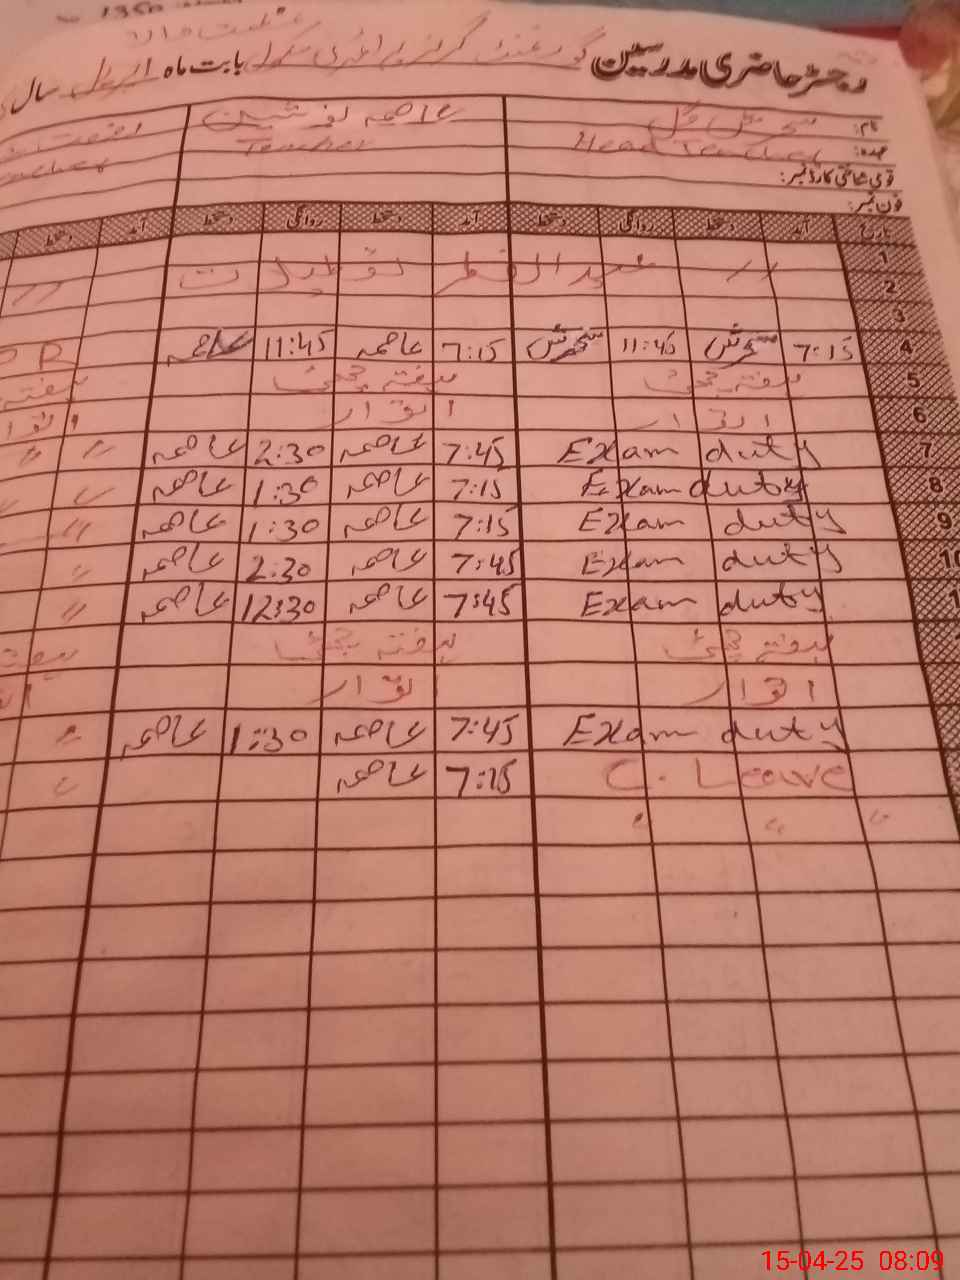 1350
رجسٹر حاضری مدرسین گورنمنٹ گرلز پرائمری سکول بابت ماہ اپریل سال
نام: سحرش گل عاصمہ نوشین
عہدہ: Head Teacher Teacher
قومی شناختی کارڈ نمبر:
فون نمبر:
تاریخ آمد دستخط روانگی دستخط آمد دستخط روانگی دستخط آمد دستخط
1
2 // عید الفطر تعطیلات //
3
4 7:15 سحرش 11:45 سحرش 7:15 عاصمہ 11:45 عاصمہ
5 ہفتہ چھٹی ہفتہ چھٹی ہفتہ
6 اتوار اتوار اتوار
7 Exam duty 7:45 عاصمہ 2:30 عاصمہ // //
8 Exam duty 7:15 عاصمہ 1:30 عاصمہ // //
9 Exam duty 7:15 عاصمہ 1:30 عاصمہ //
10 Exam duty 7:45 عاصمہ 2:30 عاصمہ //
1 Exam duty 7:45 عاصمہ 12:30 عاصمہ //
ہفتہ چھٹی ہفتہ چھٹی ہفتہ
اتوار اتوار
Exam duty 7:45 عاصمہ 1:30 عاصمہ //
C. Leave 7:15 عاصمہ
15-04-25 08:09